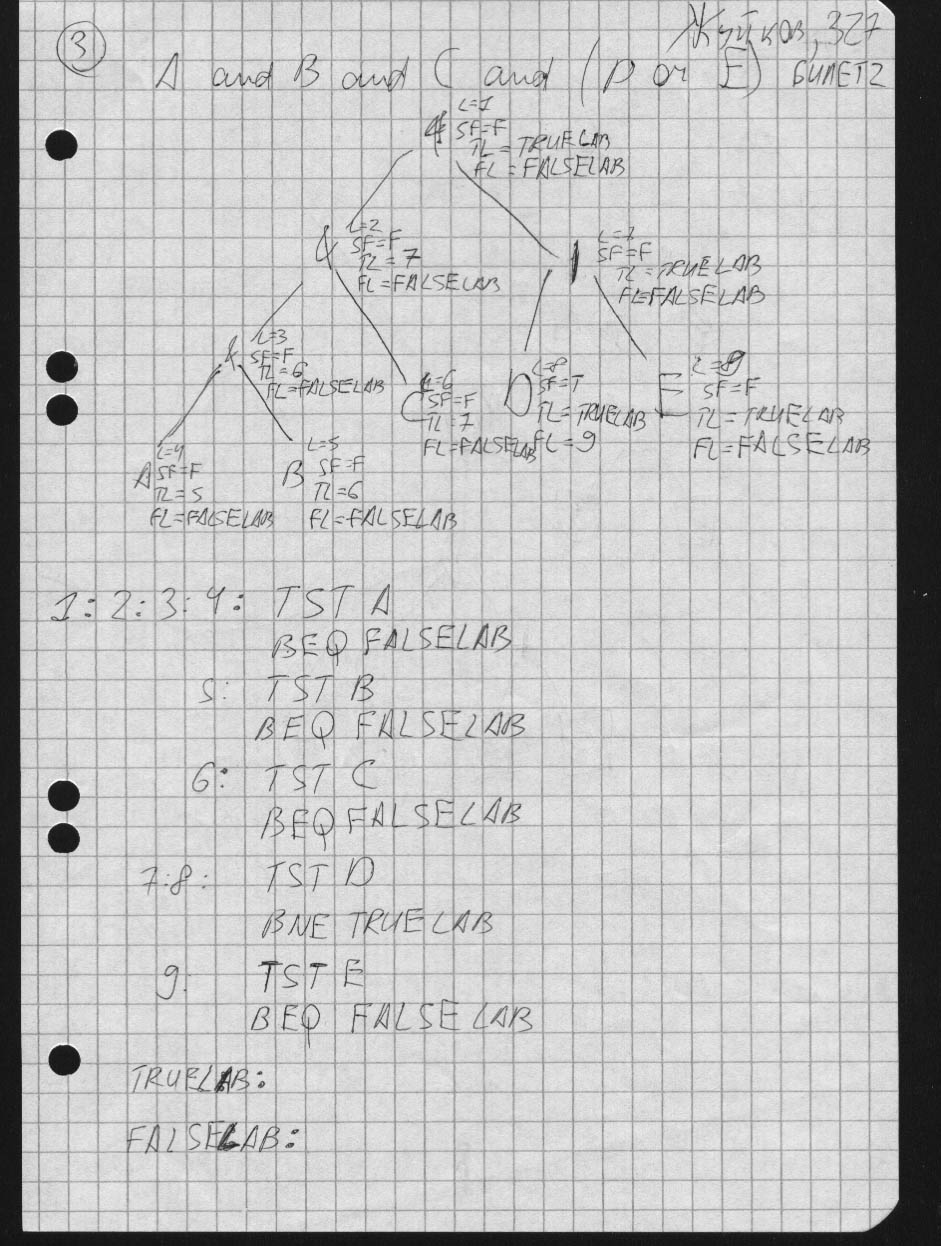 3
Жуйков, 327
A and B and C and (D or E) БИЛЕТ 2
& L=1
SF=F
TL=TRUELAB
FL=FALSELAB
& L=2
SF=F
TL=7
FL=FALSELAB
| L=7
SF=F
TL=TRUELAB
FL=FALSELAB
& L=3
SF=F
TL=6
FL=FALSELAB
C L=6
SF=F
TL=7
FL=FALSELAB
D L=8
SF=T
TL=TRUELAB
FL=9
E L=9
SF=F
TL=TRUELAB
FL=FALSELAB
A L=4
SF=F
TL=5
FL=FALSELAB
B L=5
SF=F
TL=6
FL=FALSELAB
1: 2: 3: 4: TST A
BEQ FALSELAB
5: TST B
BEQ FALSELAB
6: TST C
BEQ FALSELAB
7:8: TST D
BNE TRUELAB
9: TST E
BEQ FALSELAB
TRUELAB:
FALSELAB: